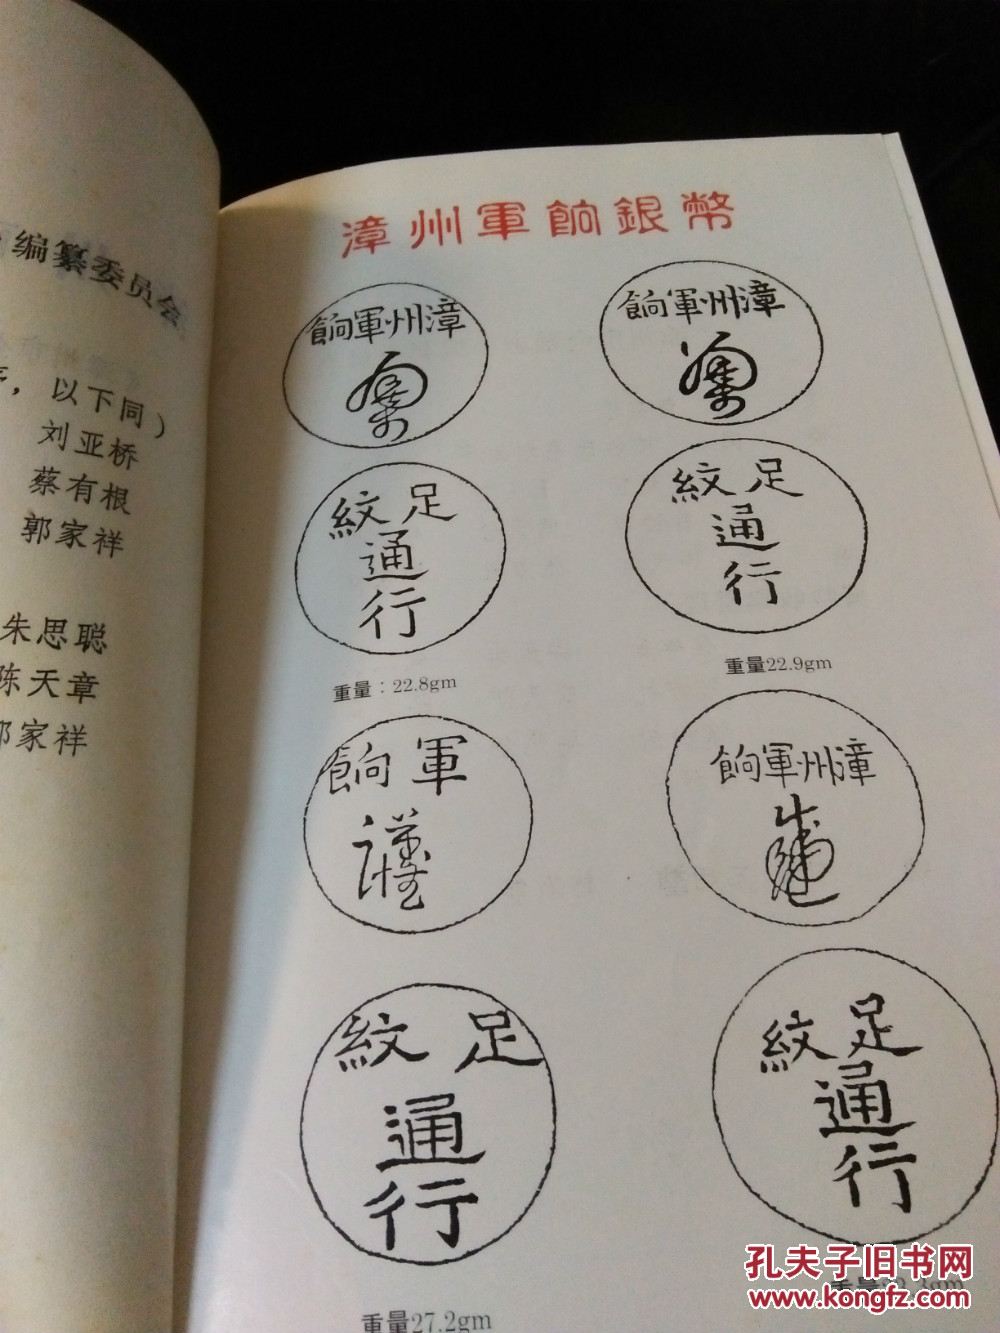 编纂委员会
以下同）
刘亚桥
蔡有根
郭家祥
朱思聪
陈天章
郭家祥
漳州軍餉銀幣
餉軍州漳
餉軍州漳
紋足
通
行
紋足
通
行
重量：22.8gm
重量22.9gm
餉軍
餉軍州漳
紋足
通
行
紋足
通
行
重量27.2gm
孔夫子旧书网
www.kongfz.com